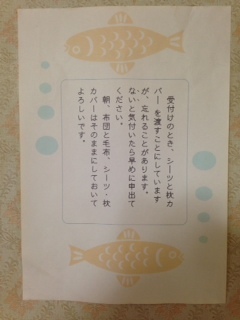 受付けのとき、シーツと枕カ
バーを渡すことにしています
が、忘れることがあります。
ないと気付いたら早めに申出て
ください。
朝、布団と毛布、シーツ・枕
カバーはそのままにしておいて
よろしいです。